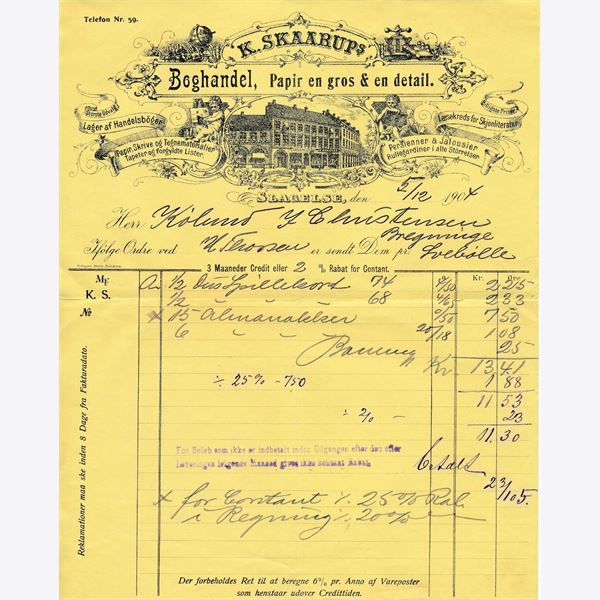 Telefon Nr. 59.
K. SKAARUPs
Boghandel, Papir en gros & en detail.
Største Udvalg
Lager af Handelsbøger
Papir, Skrive og Tegnematerialier
Tapeter og forgyldte Lister
Billigste Priser
Læsekreds for Skjønliteratur
Persienner & Jalousier
Rullegardiner i alle Størrelser
SLAGELSE, den 5/12 1904
Herr Kølund J Christensen
Bregninge
Ifølge Ordre ved er sendt Dem pr. Svebølle
3 Maaneder Credit eller 2 % Rabat for Contant.
Mk. Kr. Øre
K. S.
No
1/2 Dus Spillekort 74 4/50 2 25
1/2 " 68 4/65 2 33
+ 15 Almanakker 0/50 7 50
6 - - - 20/18 1 08
25
Kr. 13 41
÷ 25% - 750 1 88
11 53
÷ 2% - 23
11.30
For Beløb som ikke er indbetalt inden Udgangen efter den efter
Leveringen følgende Maaned gives ikke Contant Rabat
Betalt
23/1 05.
+ for Contant ÷ 25% Rab
i Regning ÷ 20%
Reklamationer maa ske inden 8 Dage fra Fakturadato.
Der forbeholdes Ret til at beregne 6% pr. Anno af Vareposter
som henstaar udover Credittiden.